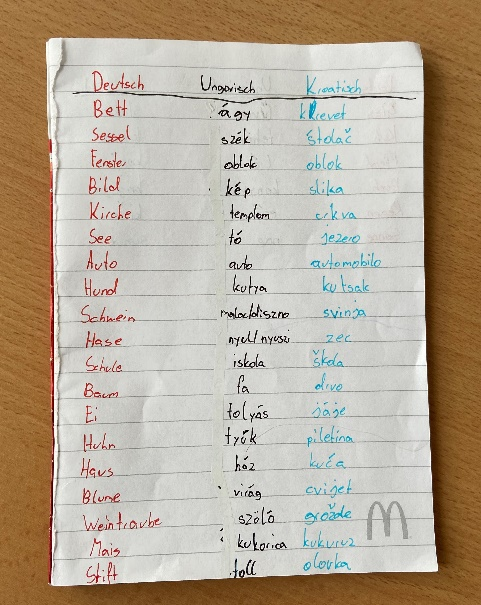 Deutsch Ungarisch Kroatisch
Bett ágy krievet
Sessel szék štolač
Fenster oblok oblok
Bild kép slika
Kirche templom crkva
See tó jezero
Auto auto automobilo
Hund kutya kutsak
Schwein malac/diszno svinja
Hase nyul/nyuszi zec
Schule iskola škola
Baum fa drvo
Ei tolyás jáje
Huhn tyúk piletina
Haus ház kuča
Blume virág cvijet
Weintraube szóló grožđe
Mais kukorica kukuruz
Stift toll olovka